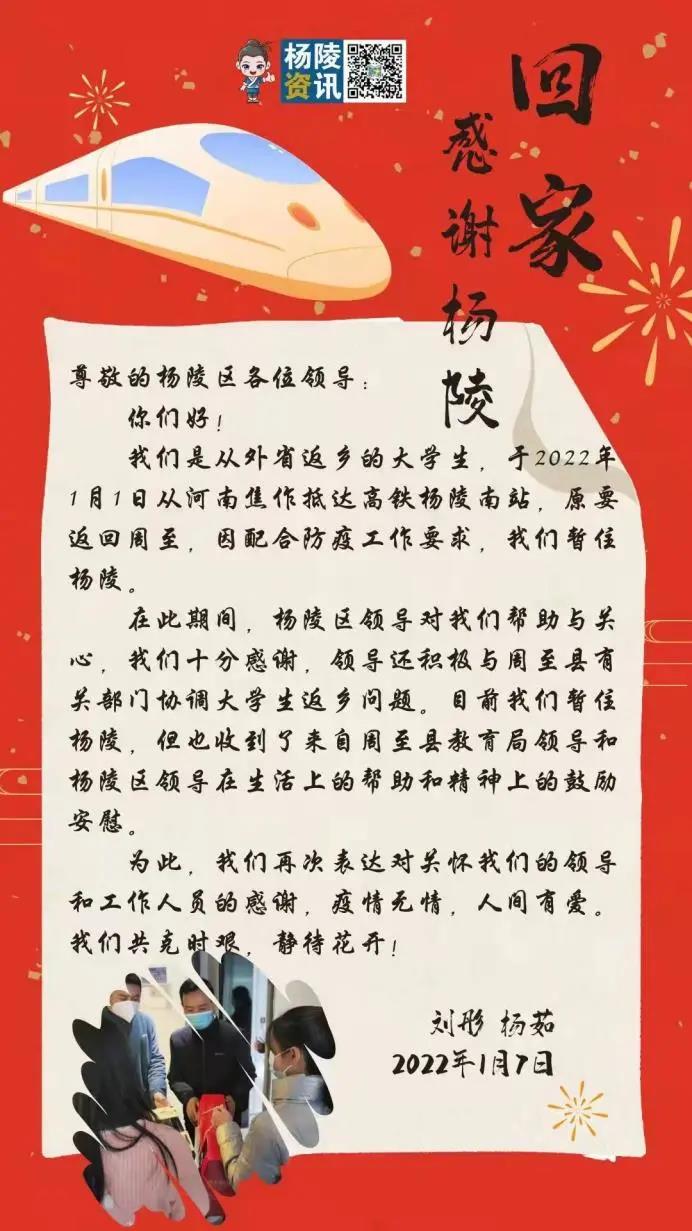 杨陵
资讯
回家
感谢杨陵
尊敬的杨陵区各位领导：
你们好！
我们是从外省返乡的大学生，于2022年
1月1日从河南焦作抵达高铁杨陵南站，原要
返回周至，因配合防疫工作要求，我们暂住
杨陵。
在此期间，杨陵区领导对我们帮助与关
心，我们十分感谢，领导还积极与周至县有
关部门协调大学生返乡问题。目前我们暂住
杨陵，但也收到了来自周至县教育局领导和
杨陵区领导在生活上的帮助和精神上的鼓励
安慰。
为此，我们再次表达对关怀我们的领导
和工作人员的感谢，疫情无情，人间有爱。
我们共克时艰，静待花开！
刘彤 杨茹
2022年1月7日